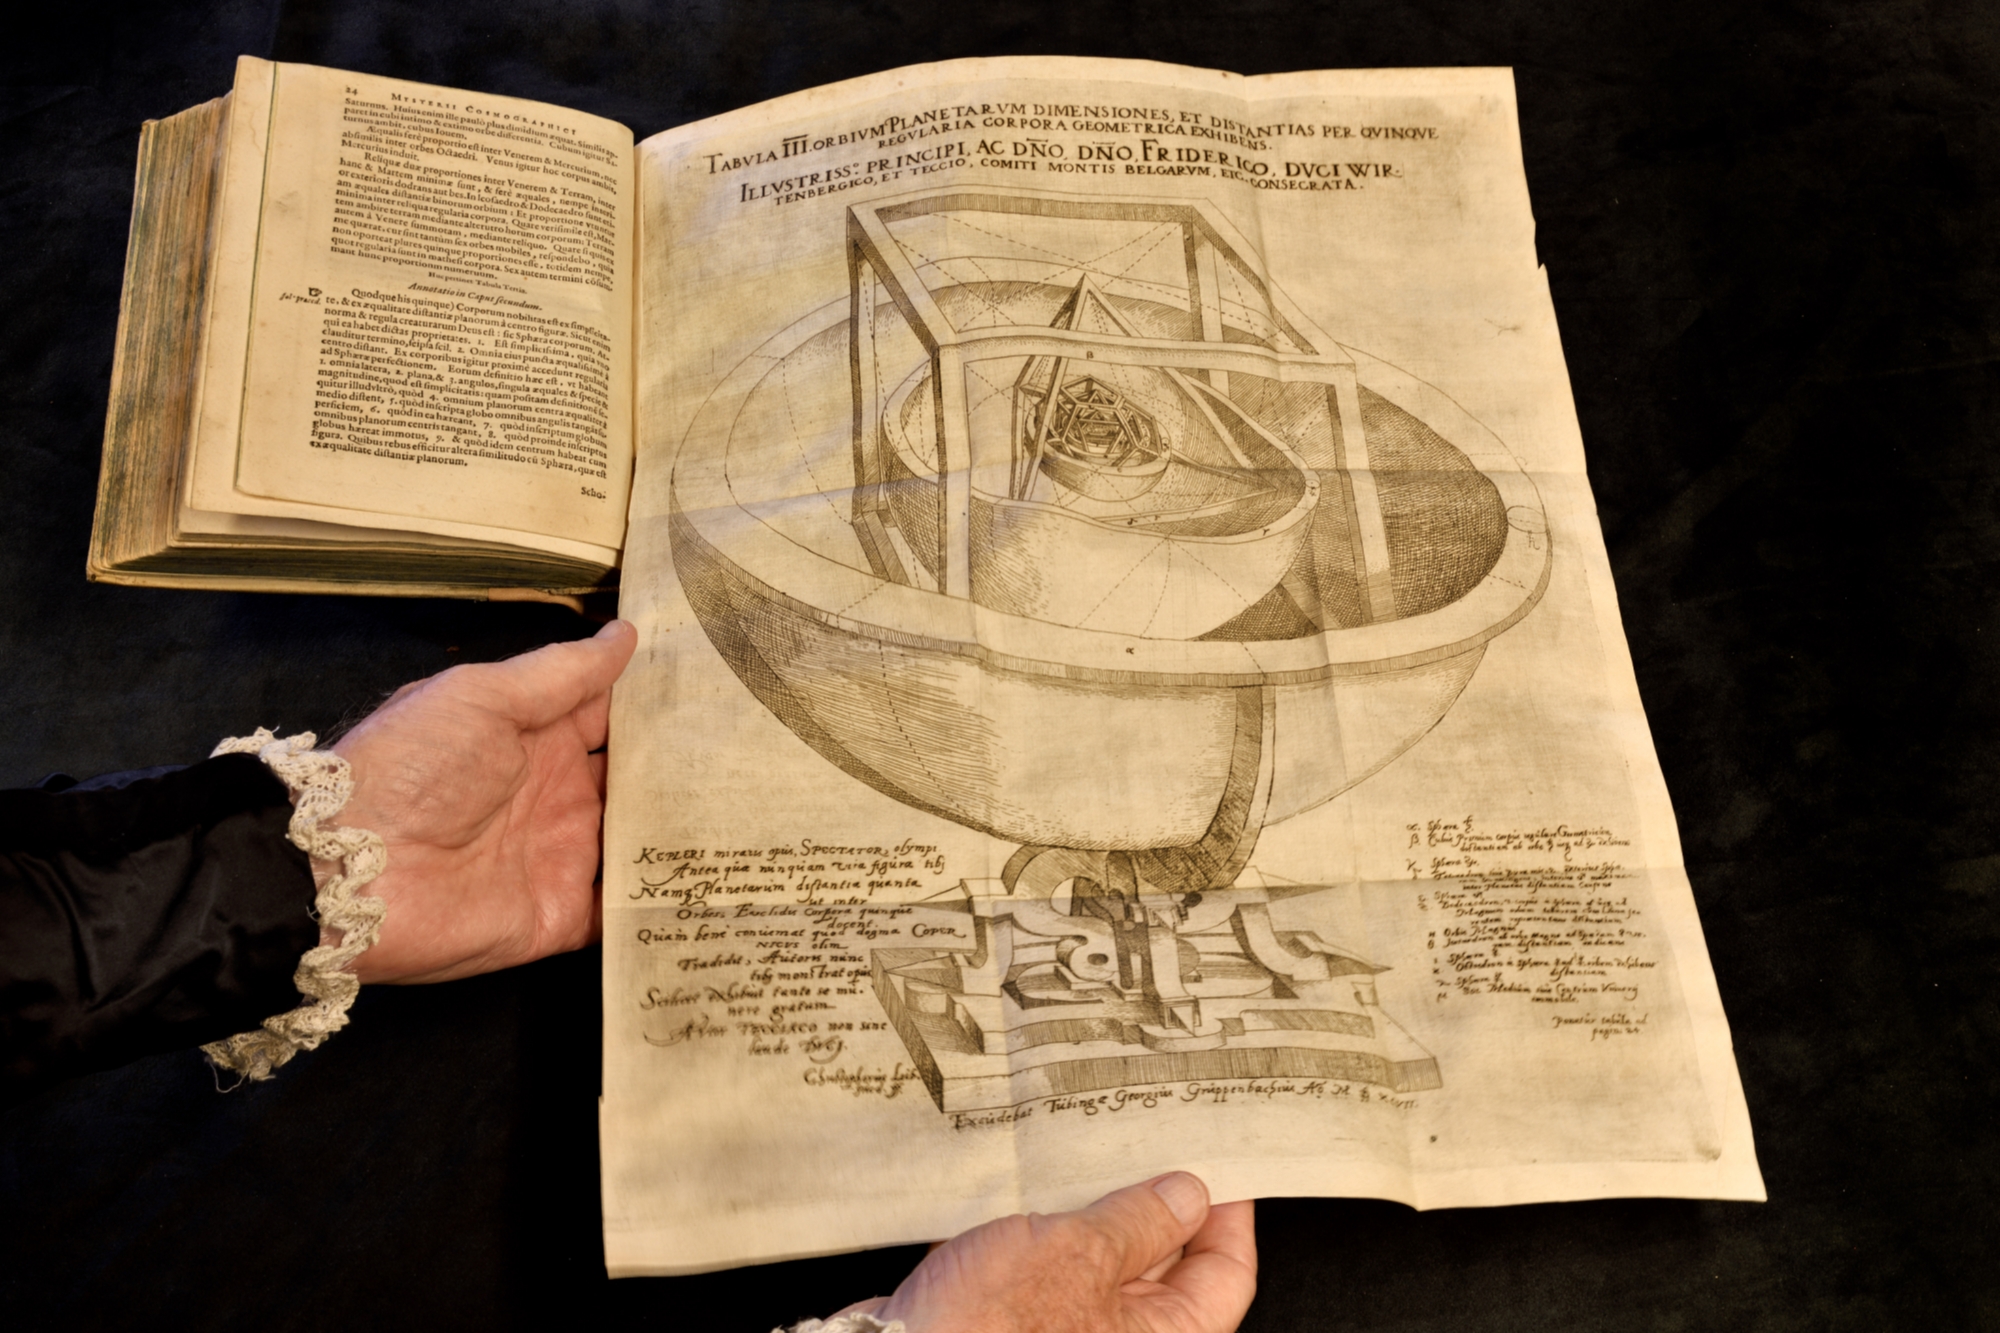 24 MYSTERII COSMOGRAPHICI
Saturnus. Huius enim ille paulò plus dimidium æquat. Similis ap-
paret in cubi intimo & extimo orbe differentia. Cubum igitur Sa-
turnus ambit, cubus Iouem.
Æqualis ferè proportio est inter Venerem & Mercurium, nec
absimilis inter orbes Octaedri. Venus igitur hoc corpus ambit,
Mercurius induit.
Reliquæ duæ proportiones inter Venerem & Terram, inter
hanc & Martem minimæ sunt, & ferè æquales, nempe interi-
or exterioris dodrans aut bes. In Icosaedro & Dodecaedro sunt eti-
am æquales distantiæ binorum orbium: Et proportione vtuntur
minima inter reliqua regularia corpora. Quare verisimile est, Mar-
tem ambire terram mediante alterutro horum corporum: Terram
autem à Venere summotam, mediante reliquo. Quare si quis ex
me quærat, cur sint tantùm sex orbes mobiles, respondebo, quia
non oporteat plures quinque proportiones esse, totidem nempe,
quot regularia sunt in mathesi corpora. Sex autem termini cõsum-
mant hunc proportionum numerum.
Huc pertinet Tabula Tertia.
Annotatio in Caput secundum.
fol. præced.
Quodque his quinque) Corporum nobilitas est ex simplicita-
te, & ex æqualitate distantiæ planorum à centro figuræ. Sicut enim
norma & regula creaturarum Deus est: sic Sphæra corporum. At-
qui ea habet dictas proprietates. 1. Est simplicissima, quia vno
clauditur termino, seipsa scil. 2. Omnia eius puncta æqualissimè à
centro distant. Ex corporibus igitur proximè accedunt regularia
ad Sphæræ perfectionem. Eorum definitio hæc est, vt habeant
1. omnia latera, 2. plana, & 3. angulos, singula æquales & specie &
magnitudine, quod est simplicitatis: quam positam definitionē se-
quitur illud vltrò, quòd 4. omnium planorum centra æqualiter à
medio distent, 5. quòd inscripta globo omnibus angulis tangāt su-
perficiem, 6. quòd in ea hæreant, 7. quòd inscriptum globum
omnibus planorum centris tangant, 8. quòd proinde inscriptus
globus hæreat immotus, 9. & quòd idem centrum habeat cum
figura. Quibus rebus efficitur altera similitudo cū Sphæra, quæ est
ex æqualitate distantiæ planorum.
Scho-
TABVLA III. ORBIVM PLANETARVM DIMENSIONES, ET DISTANTIAS PER QVINQVE
REGVLARIA CORPORA GEOMETRICA EXHIBENS.
ILLVSTRISS: PRINCIPI, AC DÑO, DÑO, FRIDERICO, DVCI WIR-
TENBERGICO, ET TECCIO, COMITI MONTIS BELGARVM, ETC. CONSECRATA.
β
γ
α
♄
KEPLERI miraris opus, SPECTATOR, olympi
Antea quæ nunquam visa figura tibi
Namq; Planetarum distantia quanta
sit inter
Orbes, Euclidis corpora quinque
docent.
Quàm benè conveniat quod dogma COPER
NICVS olim
Tradidit, Autoris nunc
tibi monstrat opus
Scilicet exhibuit tanto se mu-
nere gratum
TECCIACO non sine
DVCI.
α. Sphæra ♄
Sphæra ♃.
Orbis Magnus
Ponatur tabula ad
pagin. 24.
Excudebat Tubingæ Georgius Gruppenbachius Aõ